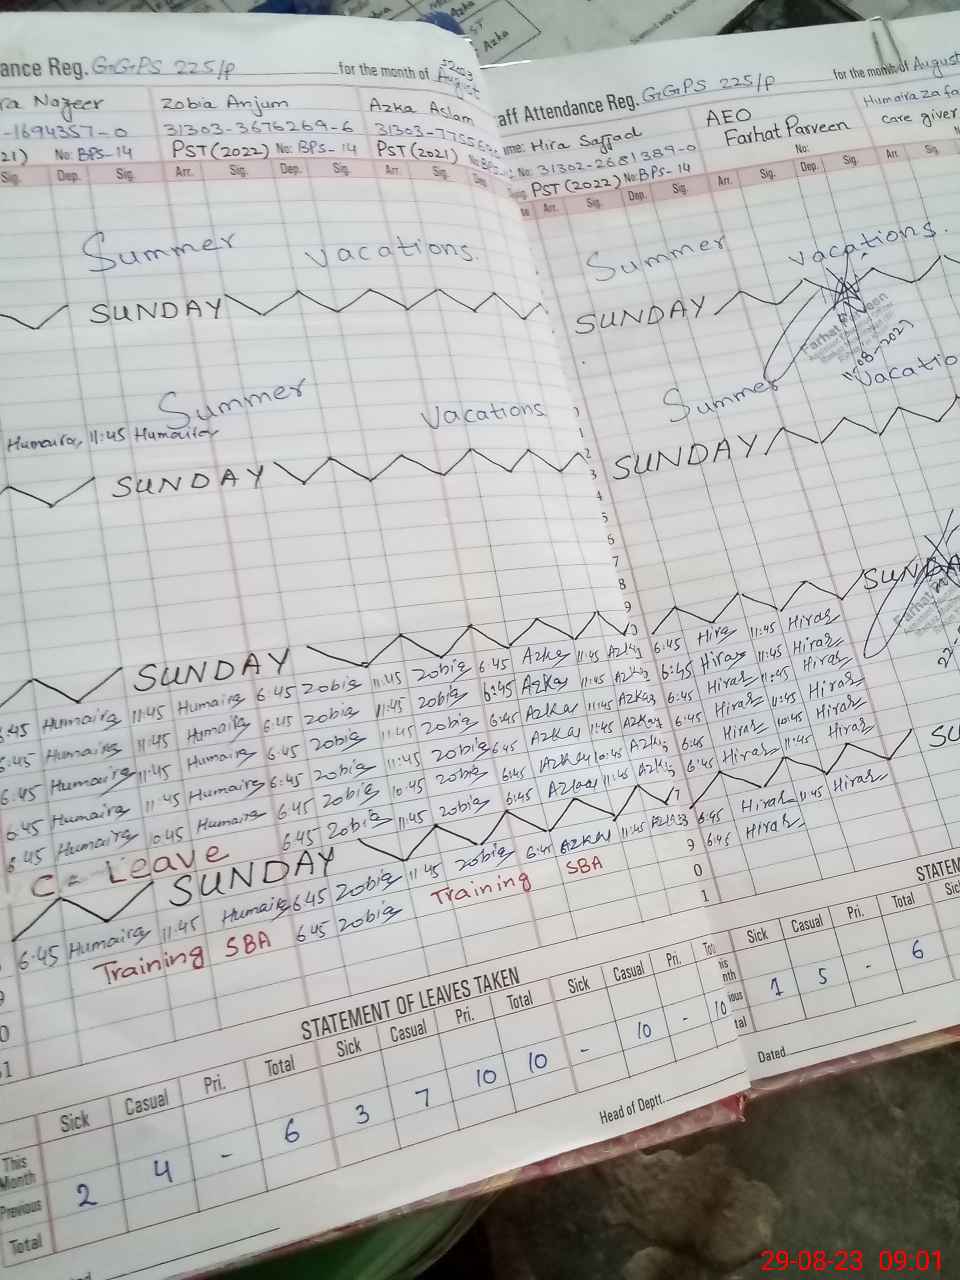 Azka
ance Reg. GGPS 225/P for the month of August 2023
ra Nazeer Zobia Anjum Azka Aslam
-1694357-0 31303-3676269-6
21) No: BPS-14 PST (2022) No: BPS-14 PST (2021)
Sig. Dep. Sig. Arr. Sig. Dep. Sig. Arr. Sig. Dep.
Summer vacations.
SUNDAY
Summer
Vacations
Humaira, 11:45 Humaira
SUNDAY
SUNDAY
6:45 Humaira 11:45 Humaira 6:45 Zobia 11:45 Zobia 6:45 Azka 11:45 Azka
6:45 Humaira 11:45 Humaira 6:45 Zobia 11:45 Zobia 6:45 Azka 11:45 Azka
6:45 Humaira 11:45 Humaira 6:45 Zobia 11:45 Zobia 6:45 Azka 11:45 Azka
6:45 Humaira 11:45 Humaira 6:45 Zobia 11:45 Zobia 6:45 Azka 11:45 Azka
6:45 Humaira 10:45 Humaira 6:45 Zobia 10:45 Zobia 6:45 Azka 10:45 Azka
C- Leave 6:45 Zobia 11:45 Zobia 6:45 Azka 11:45 Azka
SUNDAY
6:45 Humaira 11:45 Humaira 6:45 Zobia 11:45 Zobia 6:45 Azka 11:45 Azka
Training SBA 6:45 Zobia Training SBA
STATEMENT OF LEAVES TAKEN
Sick Casual Pri. Total Sick Casual Pri. Total Sick Casual Pri.
This Month
Previous 2 4 - 6 3 7 10 10 - 10 - 10
Total
Head of Deptt.
aff Attendance Reg. GGPS 225/P for the month of August
me: Hira Sajjad AEO Humaira Zafa
No: 31302-2681389-0 Farhat Parveen care giver
PST (2022) No: BPS-14 No:
Arr. Sig. Dep. Sig. Arr. Sig. Dep. Sig. Arr. Sig.
Summer vacations.
SUNDAY
Farhat Parveen
Summer Vacatio
SUNDAY
SUNDA
6:45 Hira 11:45 Hira
6:45 Hira 11:45 Hira
6:45 Hira 11:45 Hira
6:45 Hira 11:45 Hira
6:45 Hira 10:45 Hira
6:45 Hira 11:45 Hira
SU
6:45 Hira 11:45 Hira
6:45 Hira
STATEM
Sick Casual Pri. Total Sic
1 5 - 6
Dated
29-08-23 09:01